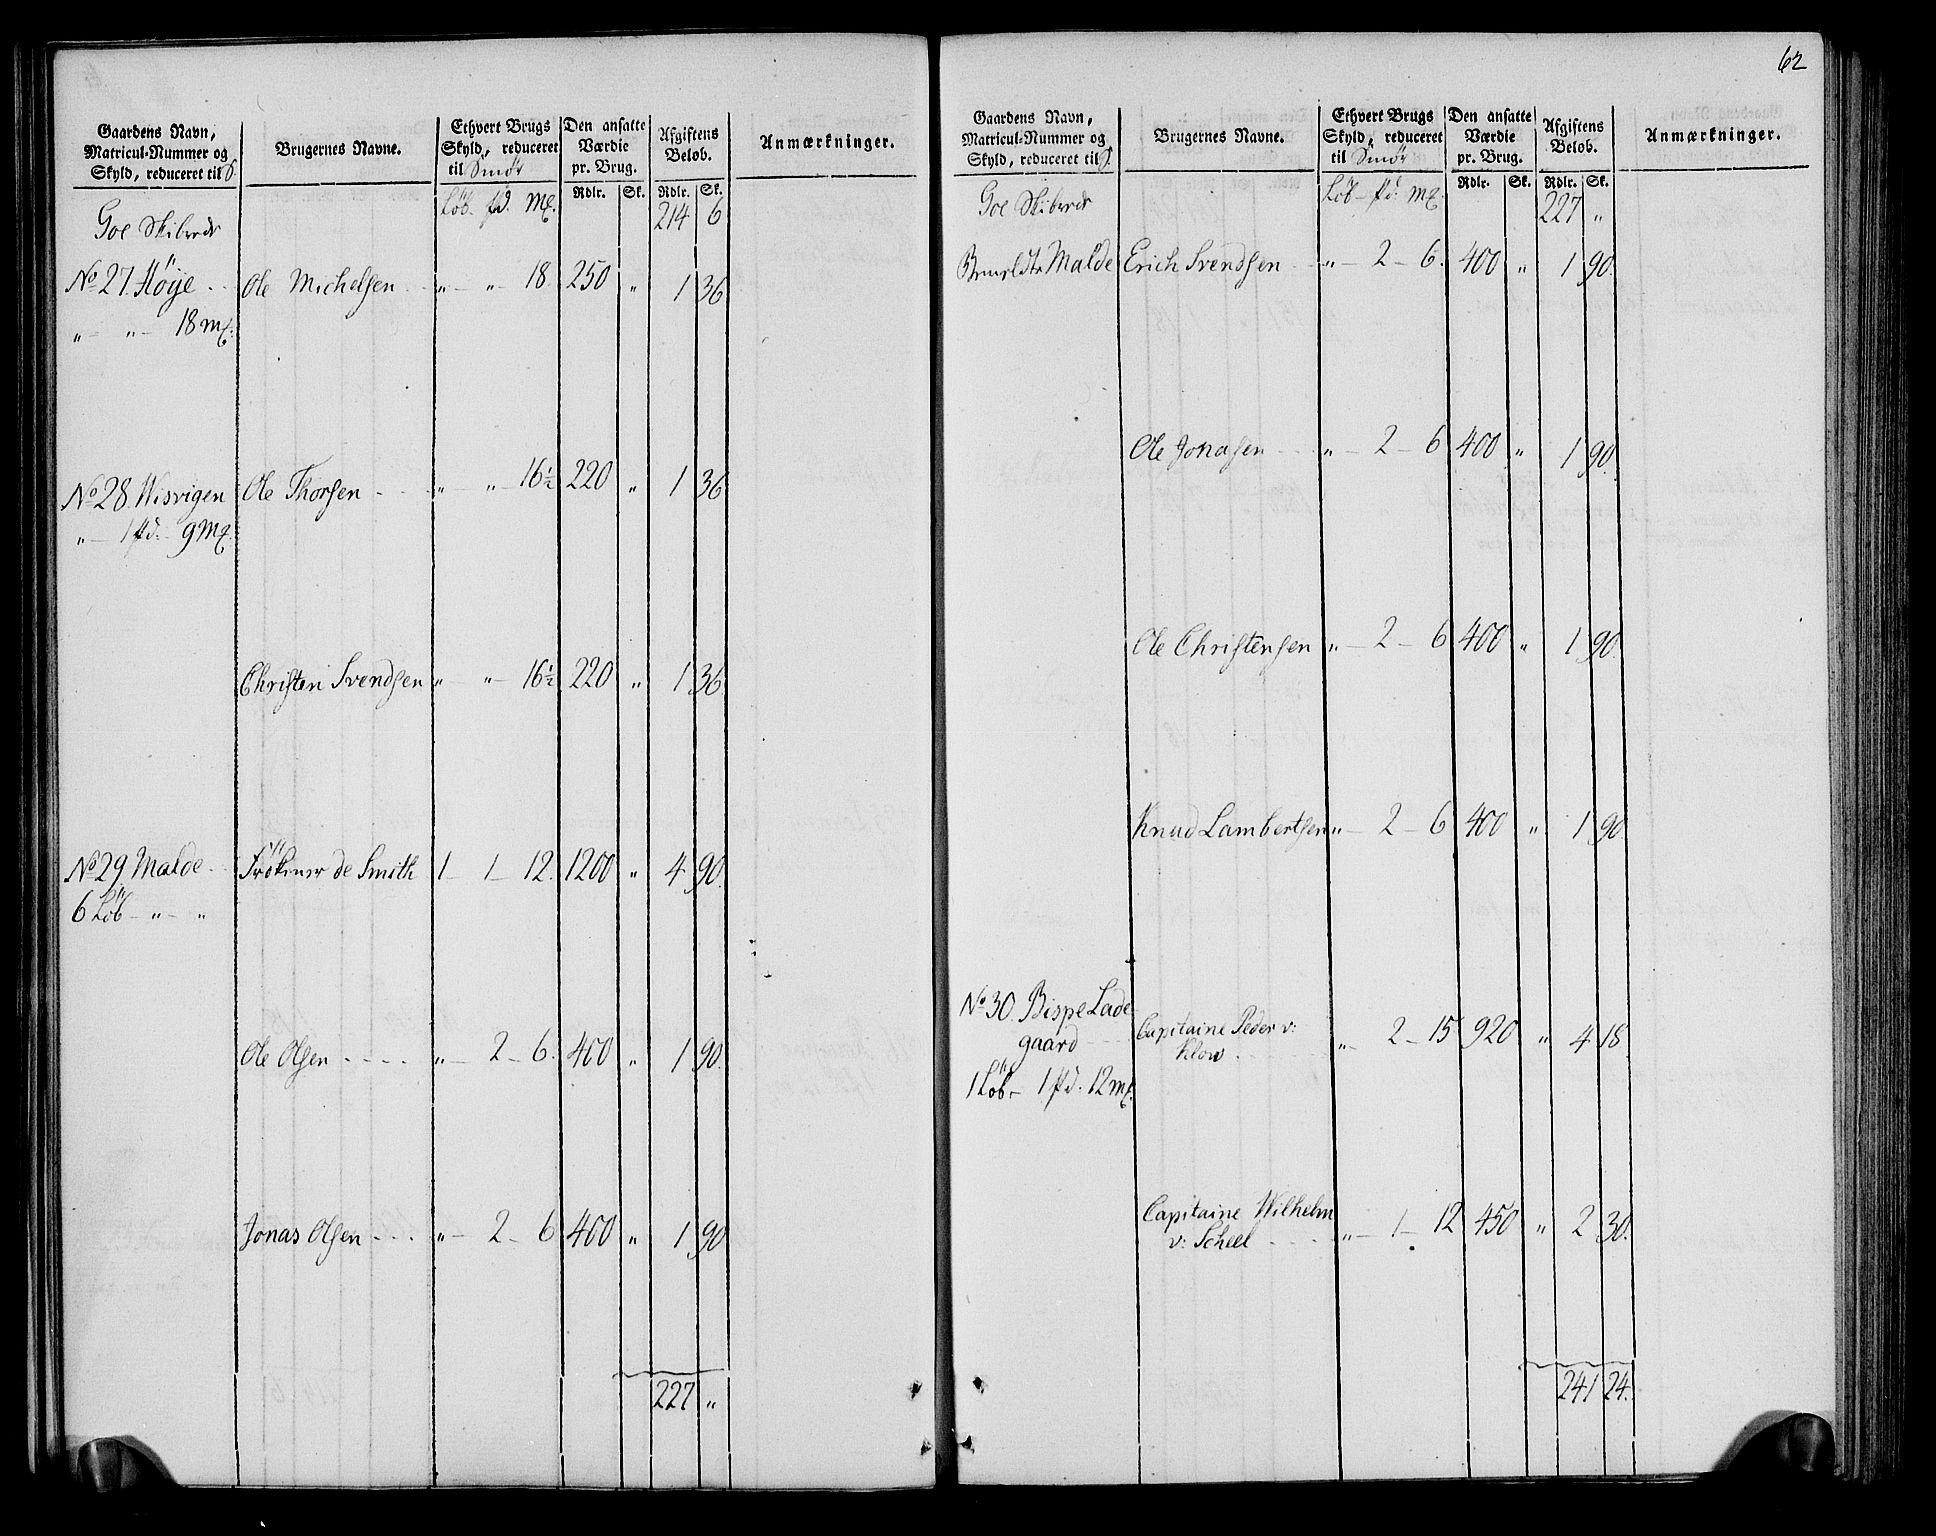 62
Gaardens Navn, Matricul-Nummer og Skyld, reduceret til
Brugernes Navne.
Ethvert Brugs Skyld, reduceret til Smör
Den ansatte Værdie pr. Brug.
Afgiftens Beløb.
Anmærkninger.
Rdlr. Sk. Rdlr. Sk.
Löb - pd. Mk. 214 6
Goe Skibrede
No 27. Höÿe Ole Michelsen „ - „ - 18. 250 „ 1 36
„ - „ - 18 Mk.
No 28. Wisvigen Ole Thorsen „ „ 16½ 220 „ 1 36
„ - 1 pd. 9 Mk.
Christen Svendsen „ - „ - 16½ 220 „ 1 36
No 29. Malde Frökiner de Smith 1 - 1 - 12. 1200 „ 4 90.
6 Löb - „ - „
Ole Olsen „ - 2 - 6. 400 „ 1 90.
Jonas Olsen „ - 2 - 6 400 „ 1 90
227 „
Gaardens Navn, Matricul-Nummer og Skyld, reduceret til
Brugernes Navne.
Ethvert Brugs Skyld, reduceret til Smör
Den ansatte Værdie pr. Brug.
Afgiftens Beløb.
Anmærkninger.
Rdlr. Sk. Rdlr. Sk.
Goe Skibrede Löb - pd. Mk. 227 „
Malde Erich Svendsen „ - 2 - 6. 400 „ 1 90.
Ole Jonasen „ - 2 - 6 400 „ 1 90.
Ole Christensen „ - 2 - 6 400 „ 1 90.
Knud Lambertsen „ - 2 - 6 400 „ 1 90.
No 30. Bispe Lade
gaard Capitaine Peder v:
Klow „ - 2 - 15 920 „ 4 18.
1 Löb - 1 pd. 12 Mk.
Capitaine Wilhelm
v: Scheel „ - 1 - 12 450 „ 2 30.
241 24.